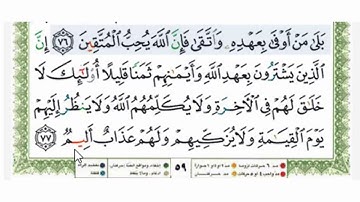 بَلَىٰ مَنْ أَوْفَىٰ بِعَهْدِهِۦ وَٱتَّقَىٰ فَإِنَّ ٱللَّهَ يُحِبُّ ٱلْمُتَّقِينَ ٧٦ إِنَّ
ٱلَّذِينَ يَشْتَرُونَ بِعَهْدِ ٱللَّهِ وَأَيْمَٰنِهِمْ ثَمَنًا قَلِيلًا أُو۟لَٰٓئِكَ لَا
خَلَٰقَ لَهُمْ فِى ٱلْءَاخِرَةِ وَلَا يُكَلِّمُهُمُ ٱللَّهُ وَلَا يَنظُرُ إِلَيْهِمْ
يَوْمَ ٱلْقِيَٰمَةِ وَلَا يُزَكِّيهِمْ وَلَهُمْ عَذَابٌ أَلِيمٌ ٧٧
٥٩